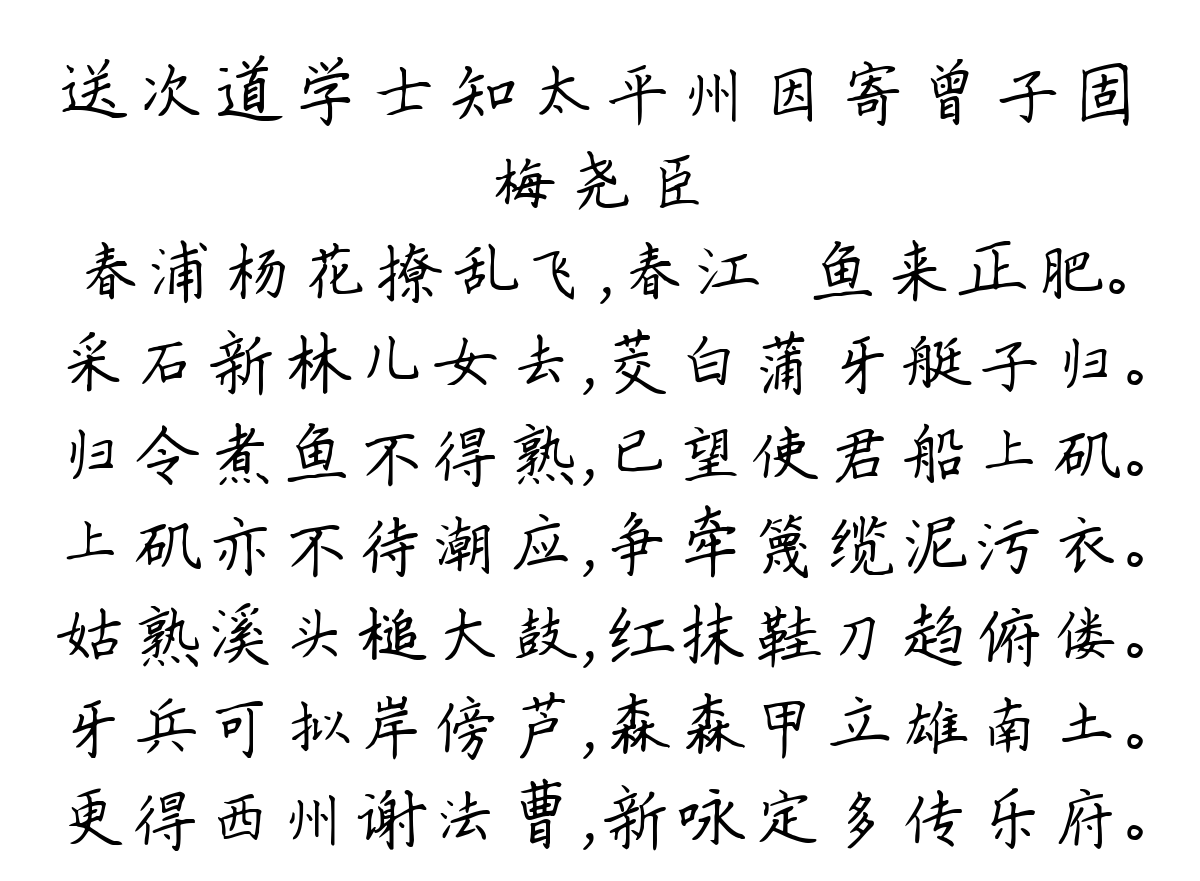 送次道学士知太平州因寄曾子固
梅尧臣
春浦杨花撩乱飞,春江 鱼来正肥。
采石新林儿女去,茭白蒲牙艇子归。
归令煮鱼不得熟,已望使君船上矶。
上矶亦不待潮应,争牵篾缆泥污衣。
姑熟溪头槌大鼓,红抹鞋刀趋俯偻。
牙兵可拟岸傍芦,森森甲立雄南土。
更得西州谢法曹,新咏定多传乐府。